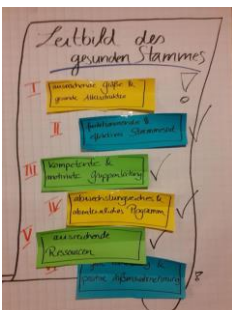 Leitbild des
gesunden Stammes
I
ausreichende Größe &
gesunde Altersstruktur
II
funktionierender &
effektiver Stammesrat
III
kompetente &
motivierte Gruppenleitung
IV
abwechslungsreiches &
Programm
V
ausreichende
Ressourcen
&
positive Außendarstellung